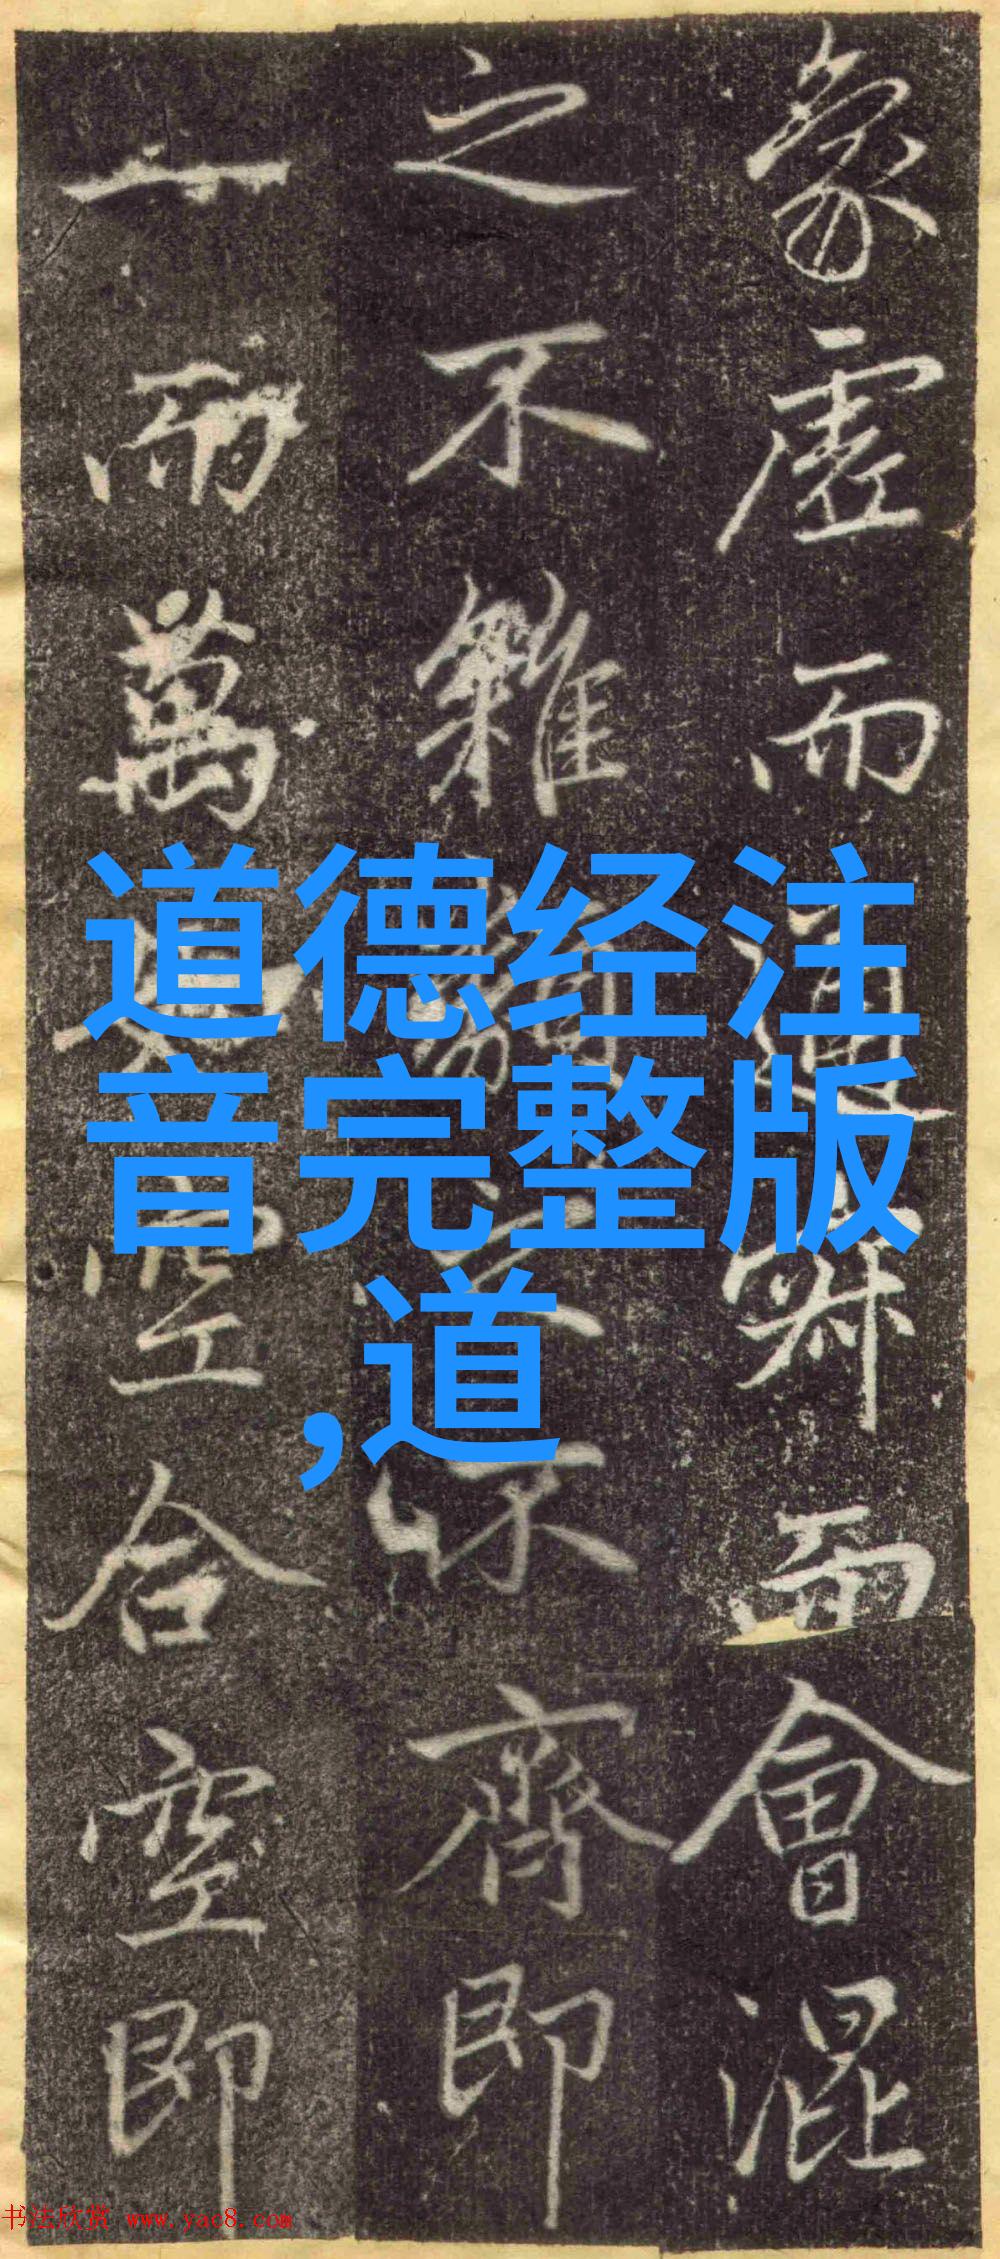 象虛而通寂而會混
之不雜類之不齊即
一而萬
空合空即
道德经注
音完整版
,道
书法欣赏 www.yac8.com